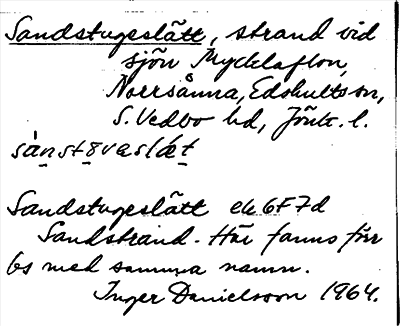 Sandstugeslätt, strand vid
sjön Mycklaflon,
Norrsånna, Edshults sn,
S. Vedbo hd, Jönk. l.
Sandstugeslätt ek 6F7d
Sandstrand. Här fanns förr
bs med samma namn.
Inger Danielsson 1964.